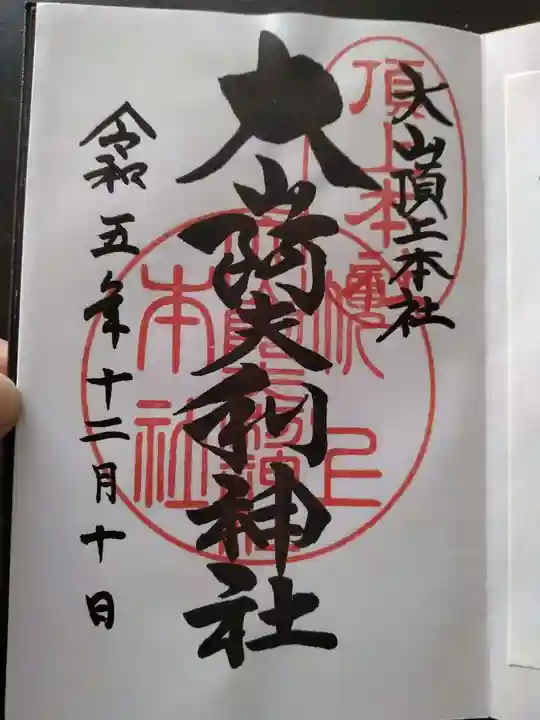 大山頂上本社
大山阿夫利神社
令和五年十二月十日
頂上本社